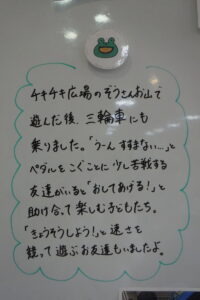 ケキケキ広場のぞうさんお山で
遊んだ後、三輪車にも
乗りました。「うーん すすまない…」と
ペダルをこぐことに少し苦戦する
友達がいると「おしてあげる!」と
助け合って楽しむ子どもたち。
「きょうそうしよう!」と速さを
競って遊ぶお友達もいましたよ。